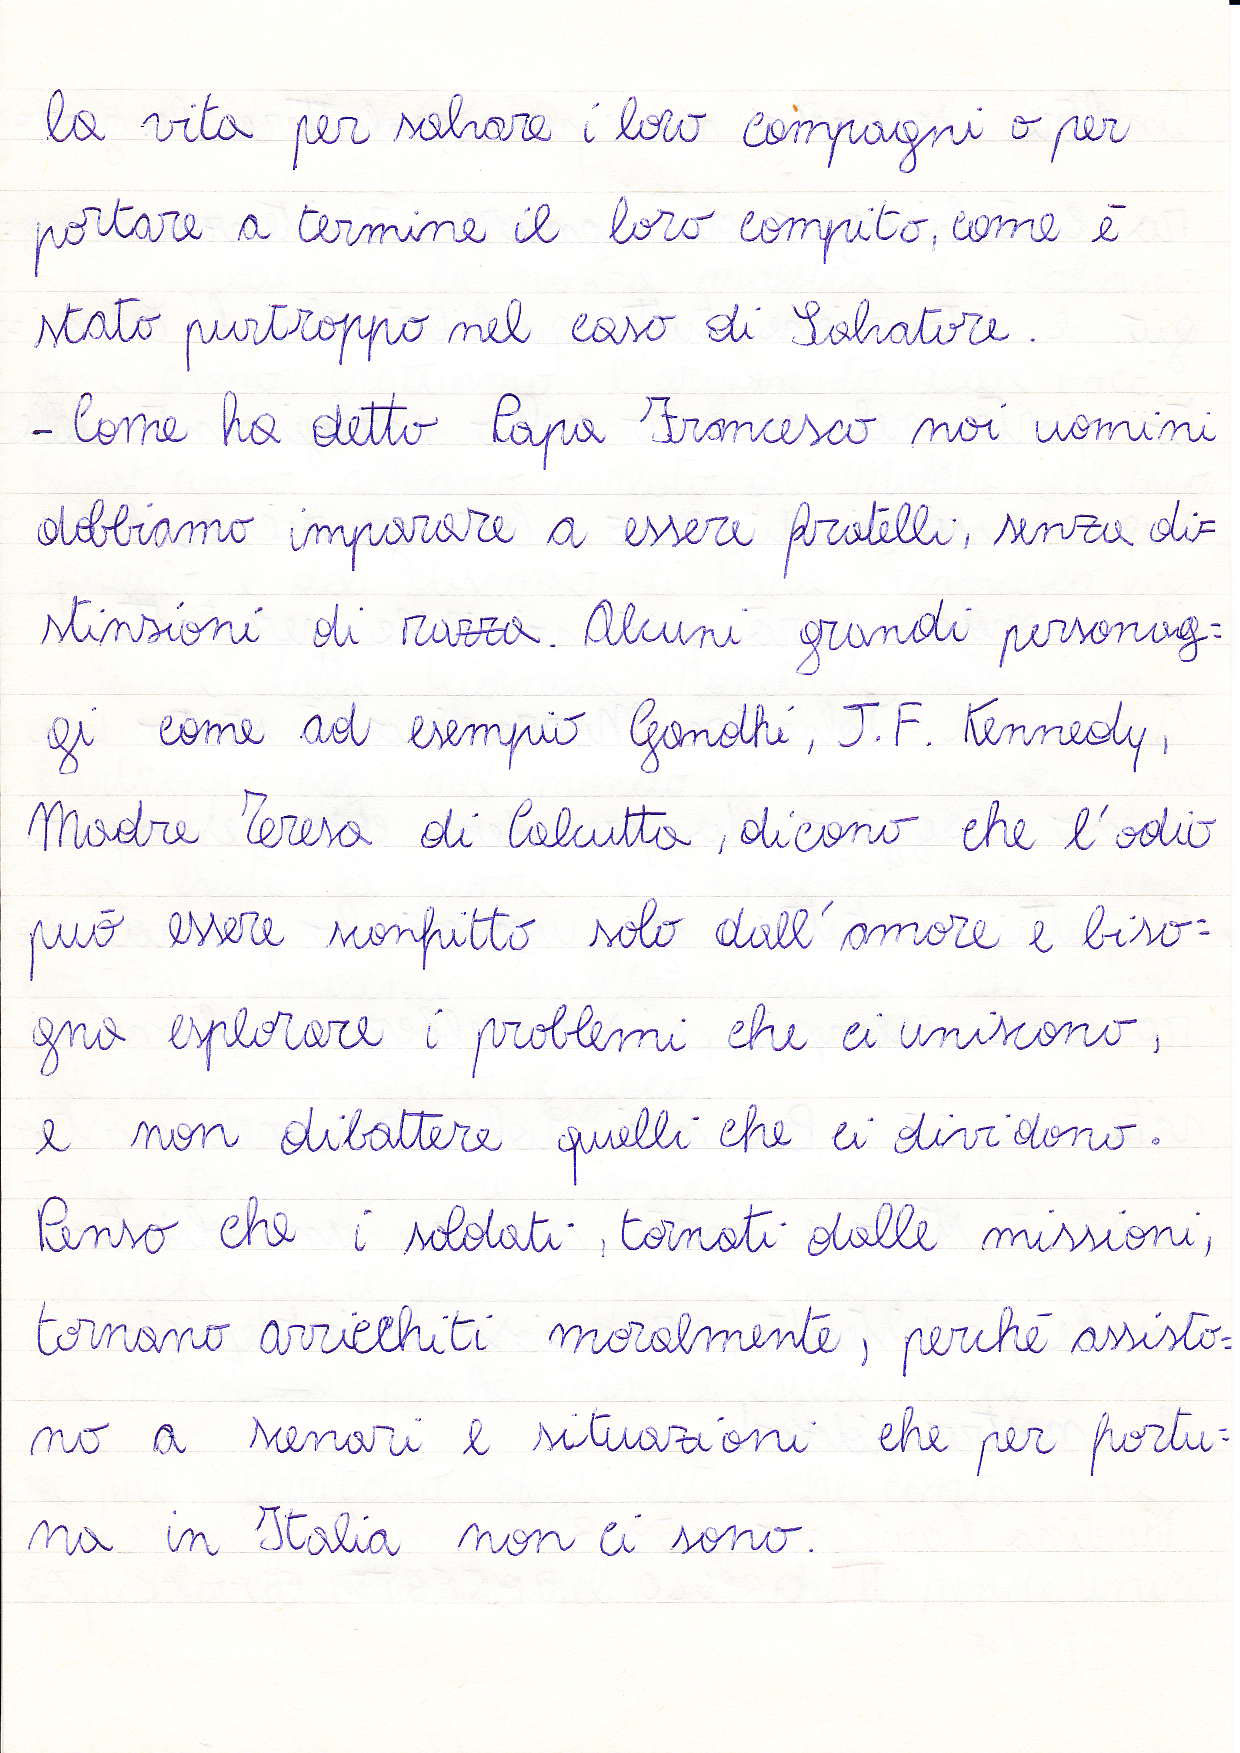 la vita per salvare i loro compagni o per
portare a termine il loro compito, come è
stato purtroppo nel caso di Salvatore.
- Come ha detto Papa Francesco noi uomini
dobbiamo imparare a essere fratelli, senza di=
stinsioni di razza. Alcuni grandi personag=
gi come ad esempio Gandhi, J.F. Kennedy,
Madre Teresa di Calcutta, dicono che l'odio
può essere sconfitto solo dall'amore e biso=
gna esplorare i problemi che ci uniscono,
e non dibattere quelli che ci dividono.
Penso che i soldati, tornati dalle missioni,
tornano arricchiti moralmente, perchē assisto=
no a scenari e situazioni che per fortu=
na in Italia non ci sono.